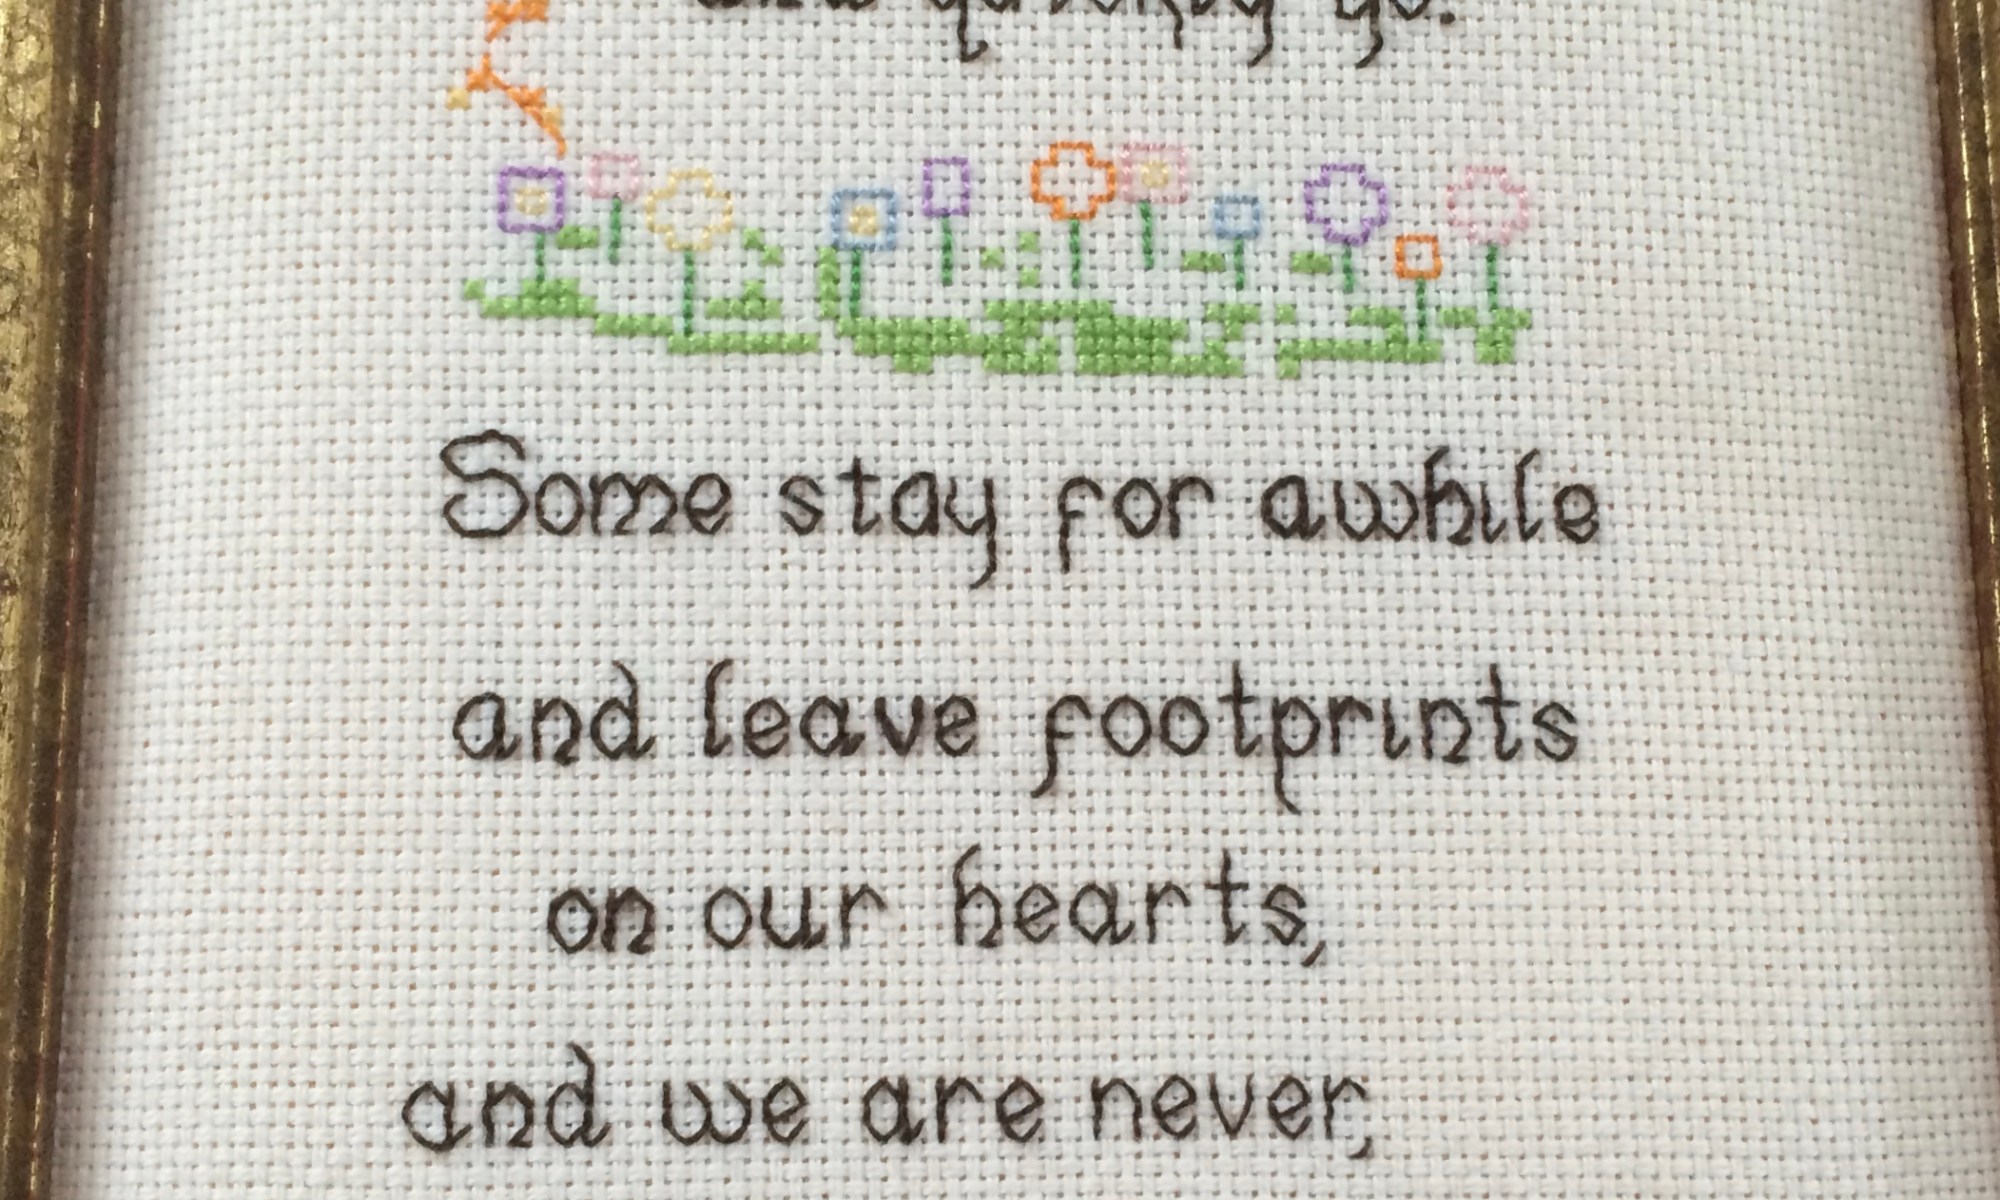 and quickly go.
Some stay for awhile
and leave footprints
on our hearts,
and we are never,